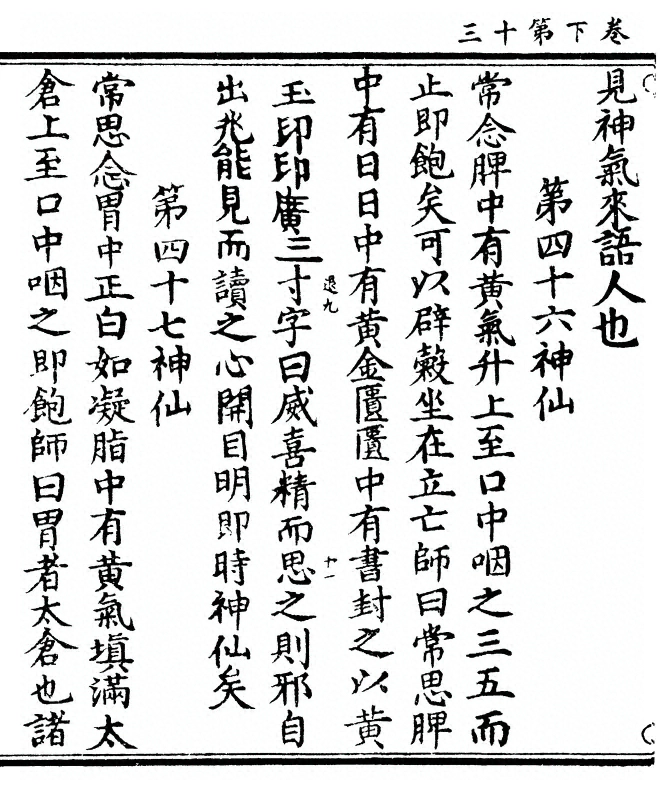 卷下第十三
見神氣來語人也
第四十六神仙
常念脾中有黃氣升上至口中咽之三五而
止即飽矣可以辟糓坐在立亡師曰常思脾
中有日日中有黃金匱匱中有書封之以黃
退九
十一
玉印印廣三寸字曰威喜精而思之則邪自
出兆能見而讀之心開目明即時神仙矣
第四十七神仙
常思念胃中正白如凝脂中有黃氣填滿太
倉上至口中咽之即飽師曰胃者太倉也諸